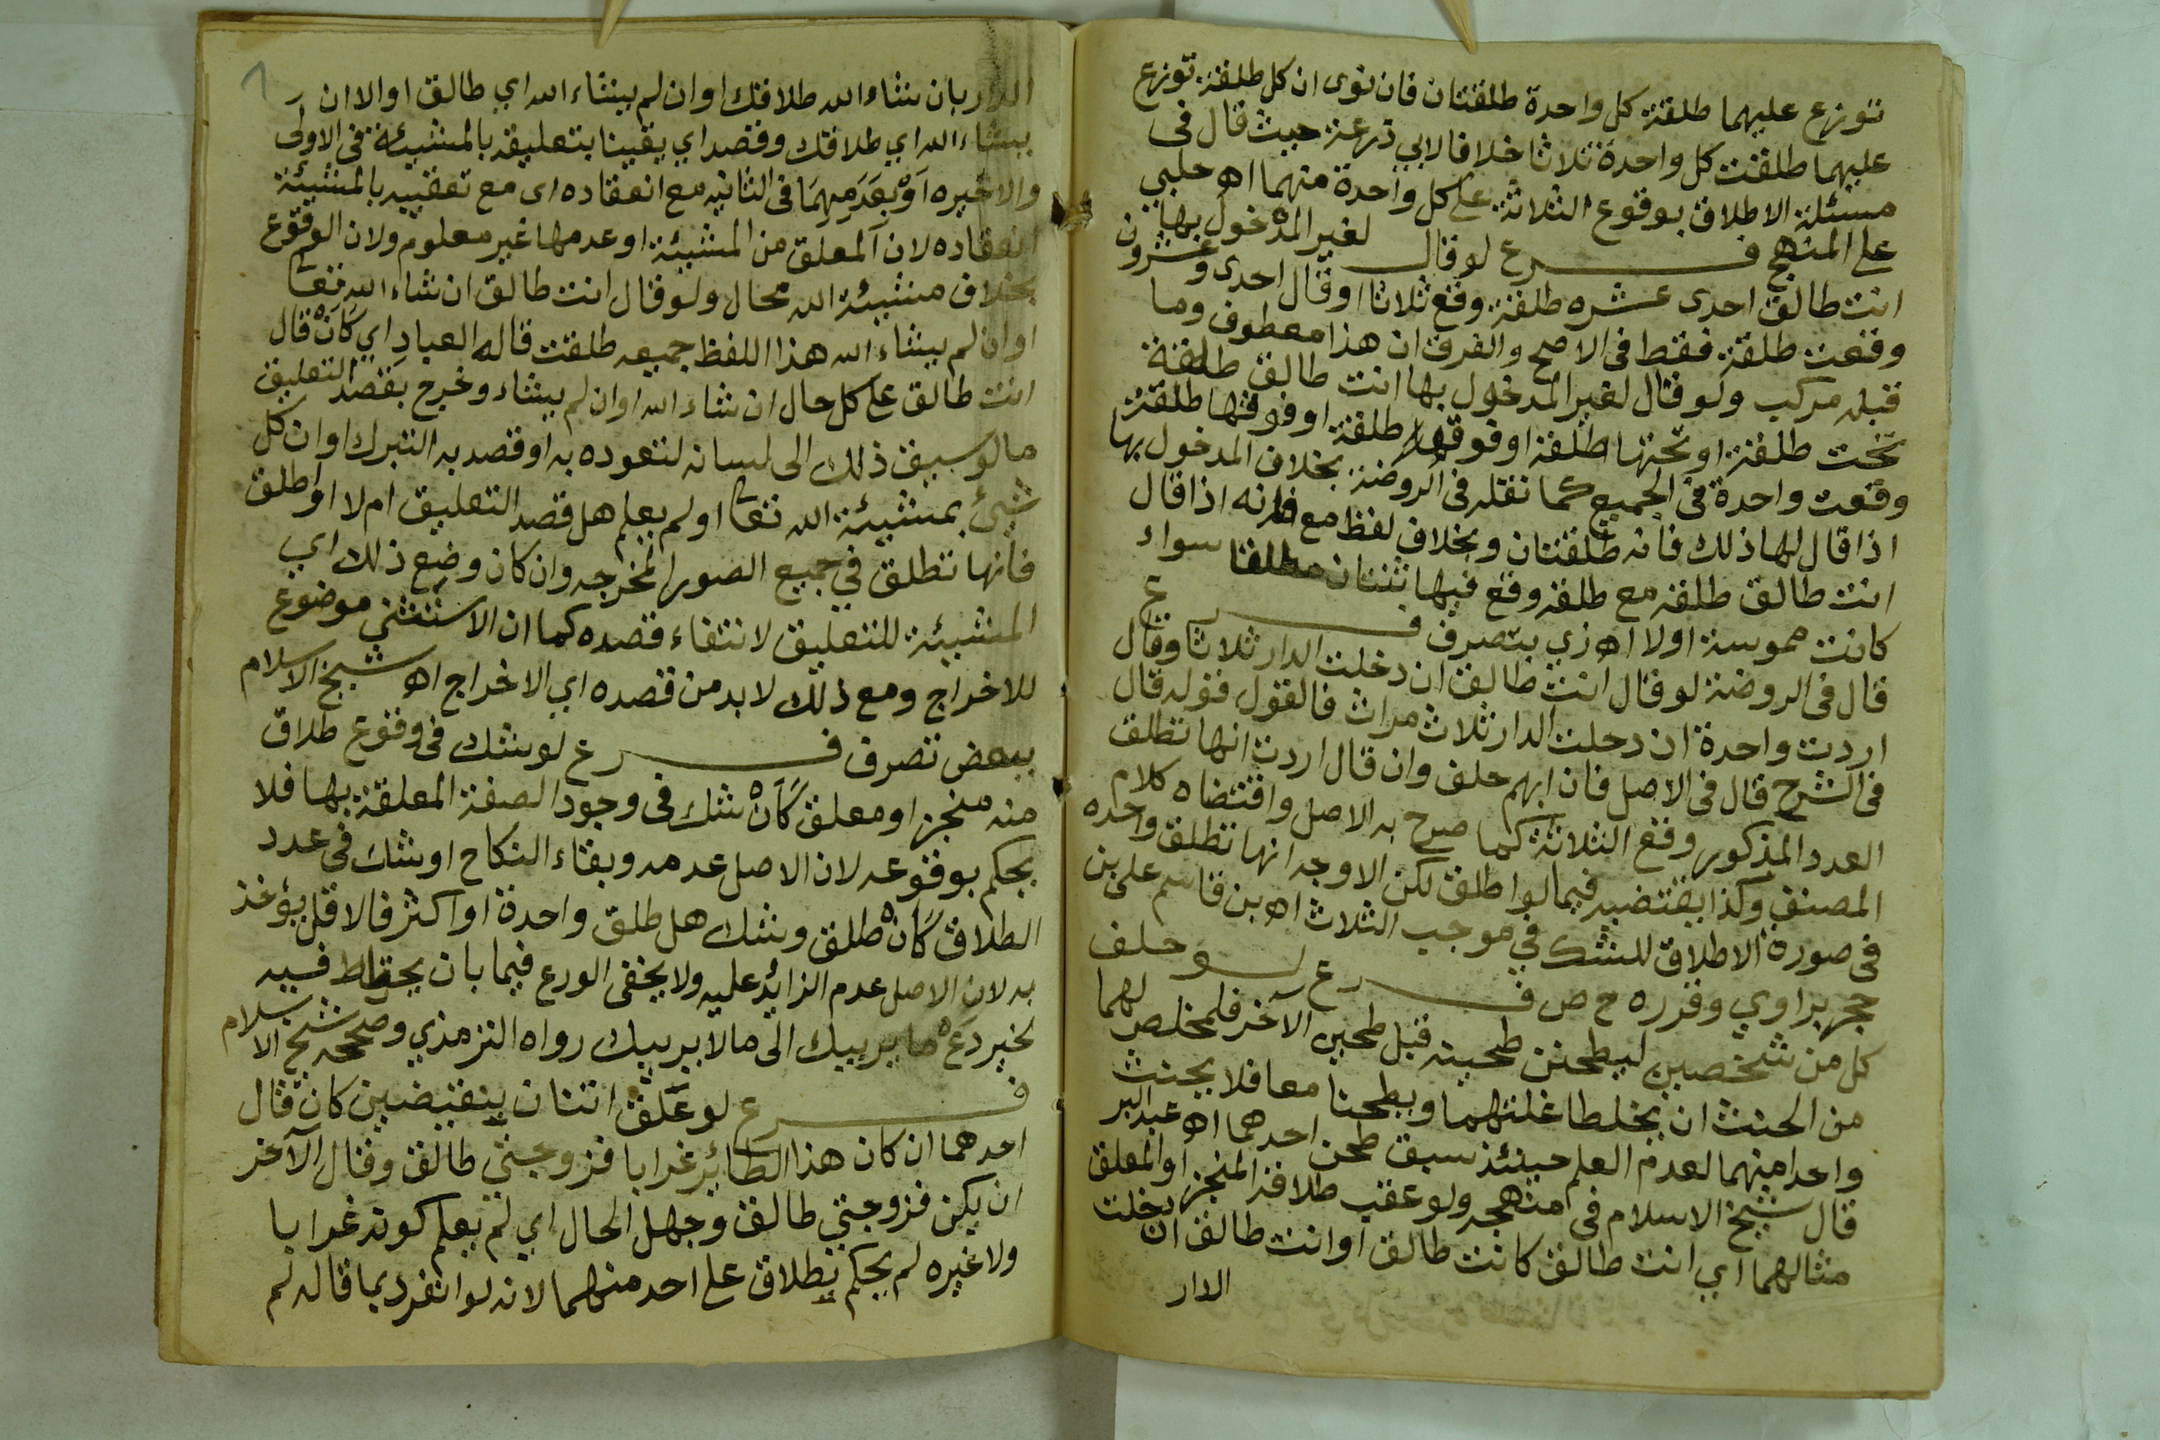 توزع عليهما طلقة كل واحدة طلقتان فان نوى ان كل طلقة توزع
عليهما طلقت كل واحدة ثلاثا خلافا لابي زرعة حيث قال في
مسئلة الاطلاق بوقوع الثلاثة على كل واحدة منهما اه حلبي
على المنهج فرع لو قال لغير المدخول بها
انت طالق احدى عشره طلقة وقع ثلاثا او قال احدى وعشرون
وقعت طلقة فقط في الاصح والفرق ان هذا معطوف وما
قبله مركب ولو قال لغير المدخول بها انت طالق طلقة
تحت طلقة او تحتها طلقة او فوق طلقة او فوقها طلقة
وقعت واحدة في الجميع كما نقله في الروضة بخلاف المدخول بها
اذا قال لها ذلك فانه طلقتان وبخلاف لفظ مع فانه اذا قال
انت طالق طلقة مع طلقة وقع فيها ثنتان مطلقا سواء
كانت ممموسة اولا اه زي بتصرف فرع
قال في الروضة لو قال انت طالق ان دخلت الدار ثلاثا وقال
اردت واحدة ان دخلت الدار ثلاث مرات فالقول قوله قال
في الشرح قال في الاصل فان اتهم حلف وان قال اردت انها تطلق
العدد المذكور وقع الثلاثة كما صرح به الاصل واقتضاه كلام
المصنف وكذا يقتضيه فيما لو اطلق لكن الاوجه انها تطلق واحده
في صورة الاطلاق للشك في موجب الثلاث اه بن قاسم على بن
حجر براوي وقرره ح ص فرع لو حلف
كل من شخصين ليطحنن طحينه قبل طحين الآخر فلمخلص لهما
من الحنث ان يخلطا غلتهما ويطحنا معا فلا يحنث
واحدا منهما لعدم العلم حينئذ سبق طحن احدهما اه عبد البر
قال شيخ الاسلام في منهجه ولو عقب طلاقه المنجز او المعلق
مثالهما اي انت طالق كانت طالق او انت طالق ان دخلت
الدار
الدار بان شاء الله طلاقك او ان لم يشاء الله اي طالق او الا ان
يشاء الله اي طلاقك وقصد اي يقينا بتعليقه بالمشيئة في الاولى
والاخيره او بعدمهما في الثانيه مع انعقاده اى مع تعقيبه بالمشيئة
انعقاده لان المعلق من المشيئة او عدمها غير معلوم ولان الوقوع
بخلاف مشيئة الله محال ولو قال انت طالق ان شاء الله تعا
او ان لم يشاء الله هذا اللفظ جميعه طلقت قاله العباد اي كان قال
انت طالق على كل حال ان شاء الله او ان لم يشاء وخرج بقصد التعليق
ما لو سبق ذلك الى لسانه لتعوده به او قصد به التبرك او ان كل
شيئ بمشيئة الله تعا او لم يعلم هل قصد التعليق ام لا او اطلق
فانها تطلق في جميع الصور المخرجه وان كان وضع ذلك اي
المشيئة للتعليق لانتفاء قصده كما ان الاستثنى موضوع
للاخراج ومع ذلك لا بد من قصده اي الاخراج اه شيخ الاسلام
ببعض تصرف فرع لو شك في وقوع طلاق
منه منجز او معلق كان شك في وجود الصفة المعلقة بها فلا
يحكم بوقوعه لان الاصل عدمه وبقاء النكاح او شك في عدد
الطلاق كان طلق وشك هل طلق واحدة او اكثر فالاقل يؤخذ
به لان الاصل عدم الزائد عليه ولا يخفى الورع فيما بان يحتاط فيه
لخبر دع ما يريبك الى ما لا يريبك رواه الترمذي وصححه شيخ الاسلام
فرع لو علق اثنان بنقيضين كان قال
احدهما ان كان هذا الطائر غرابا فزوجتي طالق وقال الآخر
ان يكن فزوجتي طالق وجهل الحال اي لم يعلم كونه غرابا
ولا غيره لم يحكم بطلاق على احد منهما لانه لو انفرد بما قاله لم